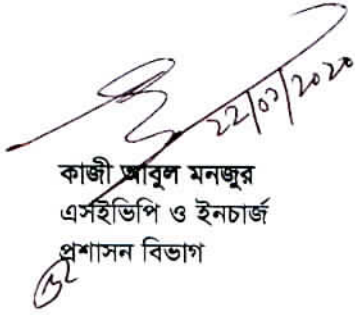 22/07/2020
কাজী আবুল মনজুর
এসইভিপি ও ইনচার্জ
প্রশাসন বিভাগ